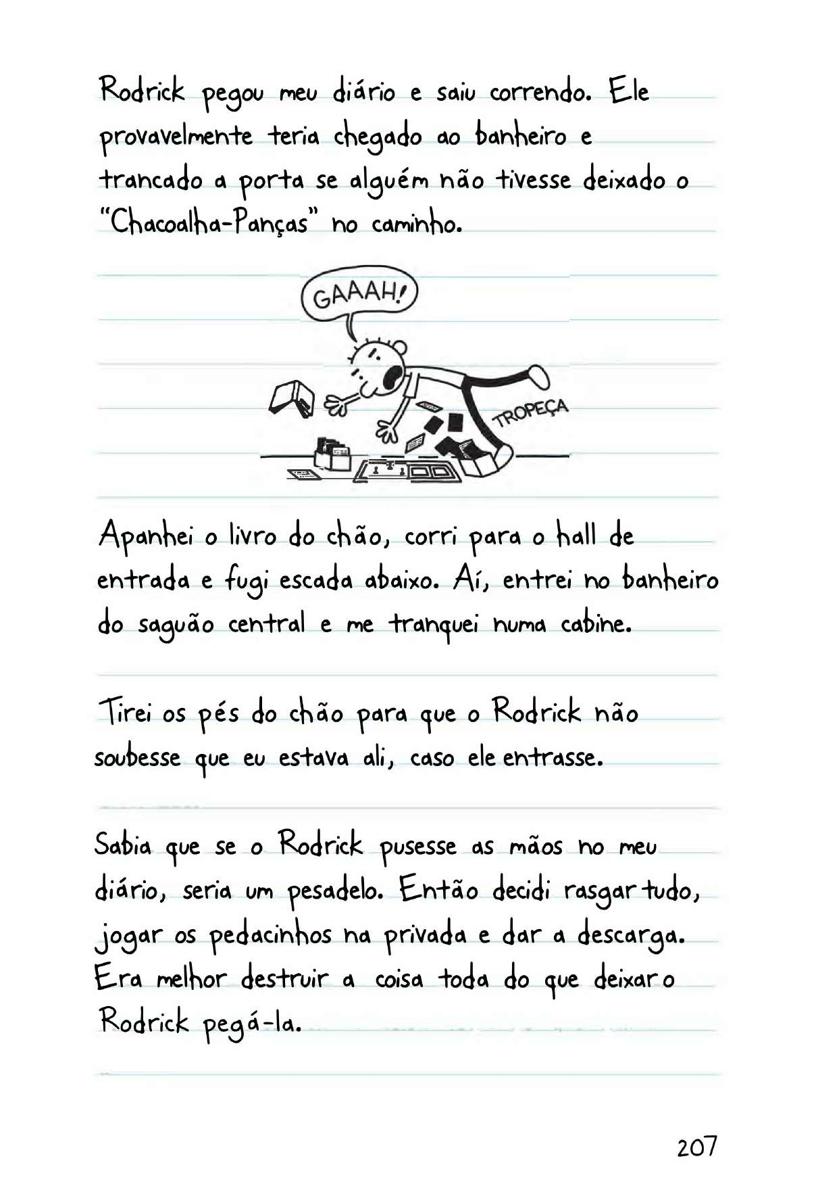 Rodrick pegou meu diário e saiu correndo. Ele
provavelmente teria chegado ao banheiro e
trancado a porta se alguém não tivesse deixado o
"Chacoalha-Panças" no caminho.
GAAAH!
TROPEÇA
Apanhei o livro do chão, corri para o hall de
entrada e fugi escada abaixo. Aí, entrei no banheiro
do saguão central e me tranquei numa cabine.
Tirei os pés do chão para que o Rodrick não
soubesse que eu estava ali, caso ele entrasse.
Sabia que se o Rodrick pusesse as mãos no meu
diário, seria um pesadelo. Então decidi rasgar tudo,
jogar os pedacinhos na privada e dar a descarga.
Era melhor destruir a coisa toda do que deixar o
Rodrick pegá-la.
207